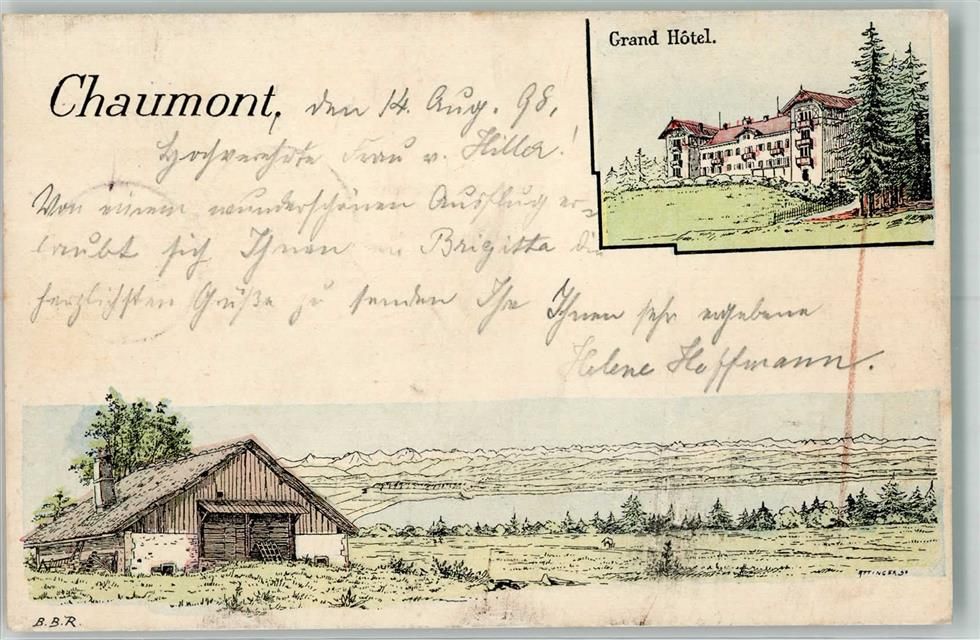 Grand Hôtel.
Chaumont, den 14. Aug. 98.
Hochverehrte Frau v. Hiller!
Von einem wunderschönen Ausflug er-
laubt sich Ihnen Brigitta die
herzlichsten Grüße zu senden Ihr Ihnen sehr ergebene
Helene Hoffmann.
ATTINGER SC
B.B.R.